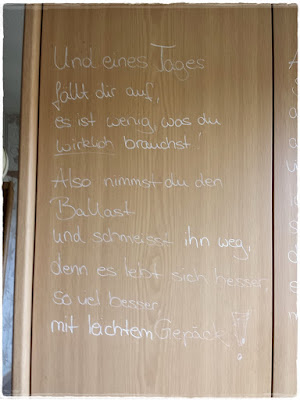 Und eines Tages
fällt dir auf,
es ist wenig, was du
wirklich brauchst!
Also nimmst du den
Ballast
und schmeisst ihn weg,
denn es lebt sich besser,
so viel besser,
mit leichtem Gepäck!